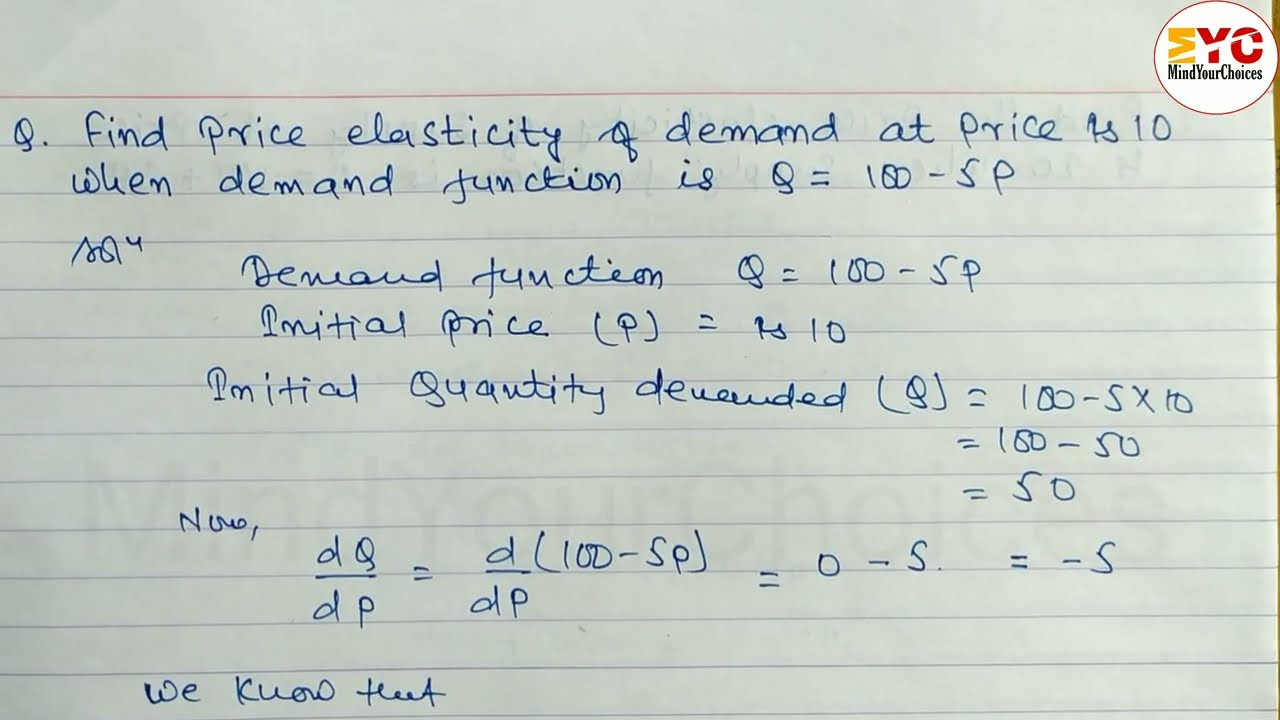 MYC
MindYourChoices
Q. Find Price elasticity of demand at price Rs 10
when demand function is Q = 100 - 5P
Solⁿ
Demand function Q = 100 - 5P
Initial price (P) = Rs 10
Initial Quantity demanded (Q) = 100 - 5 × 10
= 100 - 50
= 50
Now,
dQ/dP = d(100 - 5P)/dP = 0 - 5. = -5
We know that
MindYourChoices